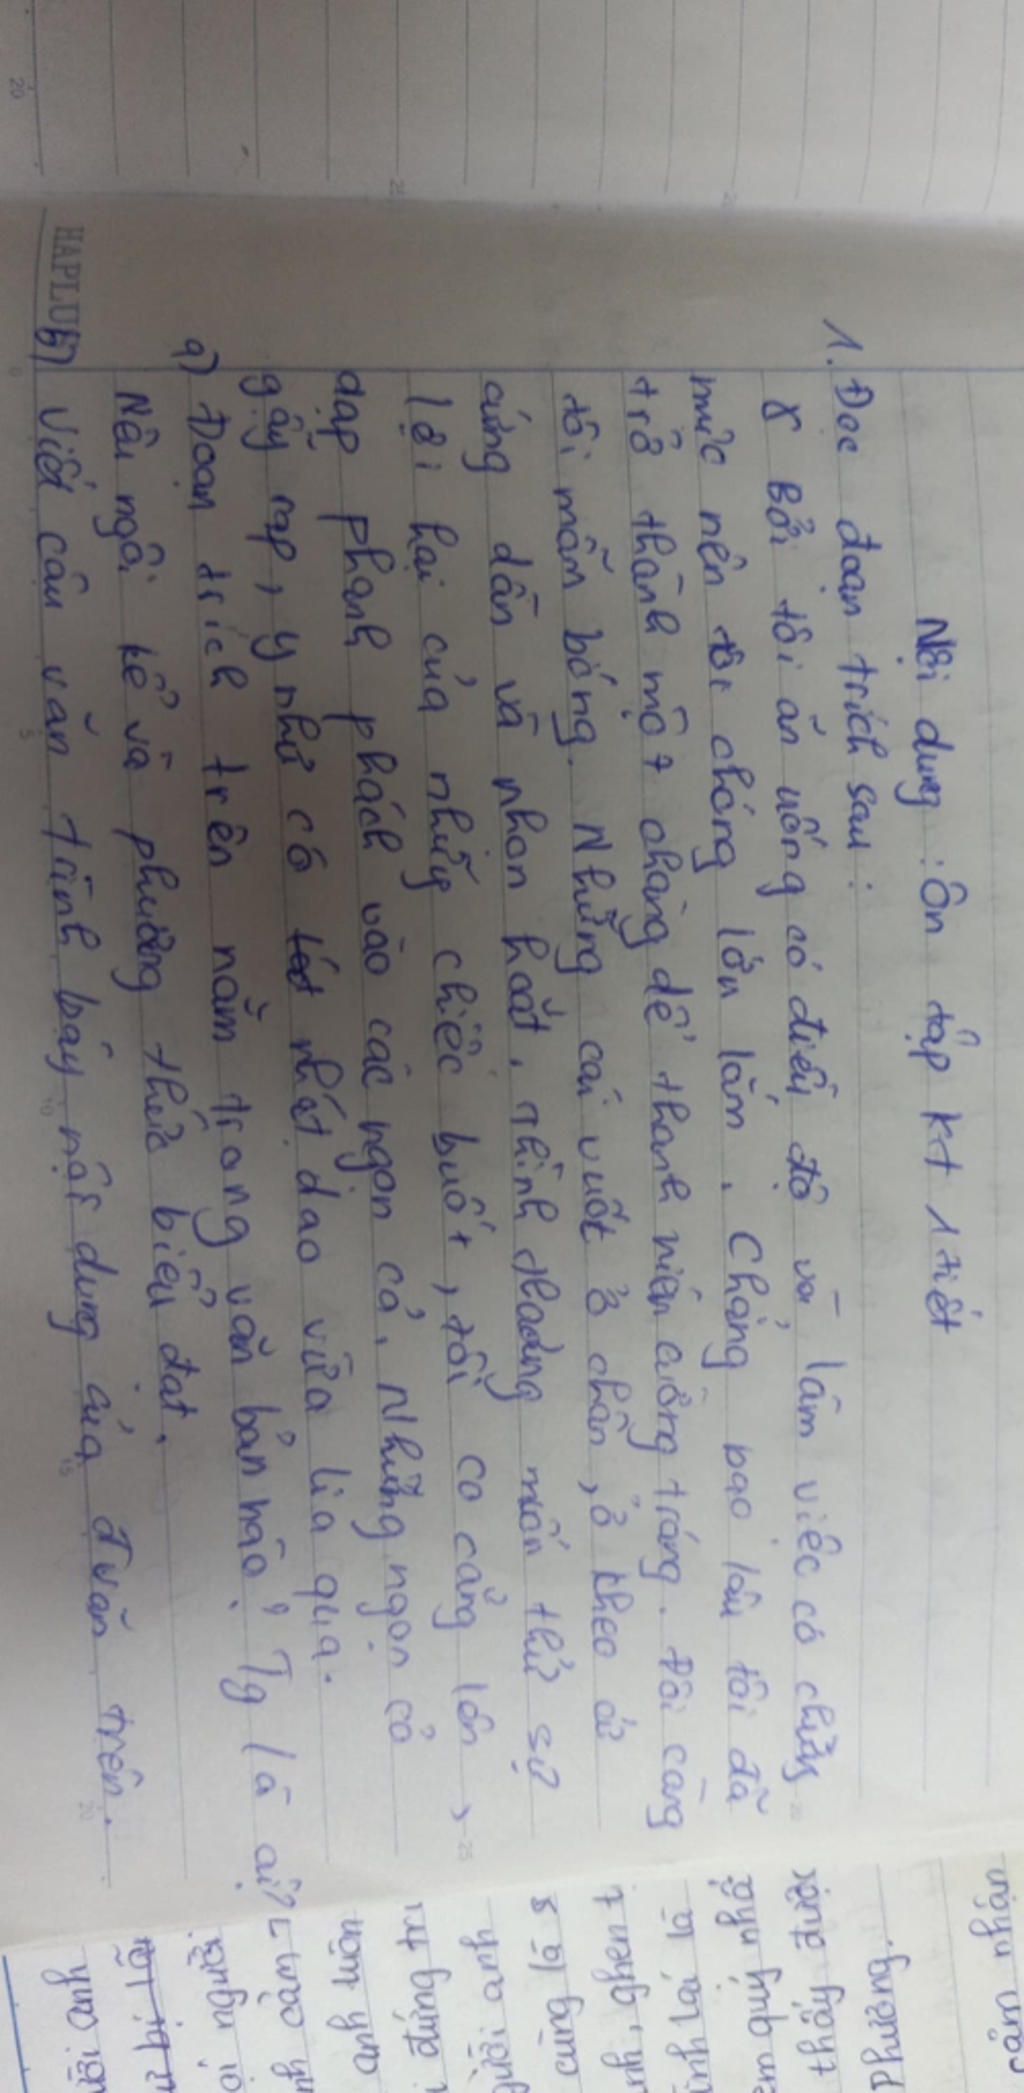 Nội dung : Ôn tập kt 1 tiết
1. Đọc đoạn trích sau :
Bởi tôi ăn uống có điều độ và làm việc có chừng
mực nên tôi chóng lớn lắm. Chẳng bao lâu tôi đã
trở thành một chàng dế thanh niên cường tráng. Đôi càng
tôi mẫm bóng. Những cái vuốt ở chân, ở kheo cứ
cứng dần và nhọn hoắt. Thỉnh thoảng muốn thử sự
lợi hại của những chiếc vuốt, tôi co cẳng lên,
đạp phanh phách vào các ngọn cỏ. Những ngọn cỏ
gẫy rạp, y như có nhát dao vừa lia qua.
a) Đoạn trích trên nằm trong văn bản nào? Tg là ai?
Nêu ngôi kể và phương thức biểu đạt.
HAPLU
b) Viết câu văn trình bày nội dung của đ văn trên.
20
cảm nhận
Phương.
thấy được
em quý nhớ
ính lại là
nh, ghen t
cũng là s
gười anh
i đứng trư
anh luôn
nh cảm
ói người
ười anh